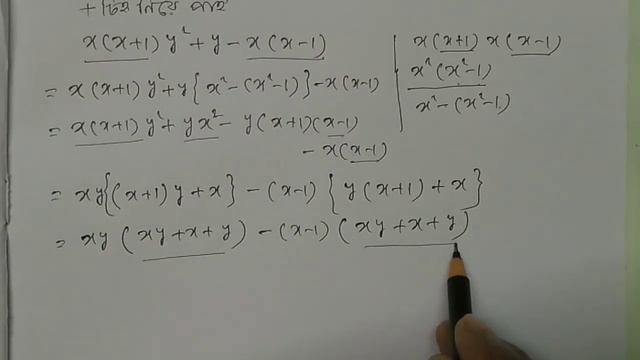 + চিহ্ন নিয়ে পাই
x(x+1) y² + y - x(x-1)
= x(x+1) y² + y{x² - (x²-1)} - x(x-1)
= x(x+1) y² + yx² - y(x+1)(x-1)
- x(x-1)
= xy{(x+1)y + x} - (x-1){y(x+1) + x}
= xy(xy+x+y) - (x-1)(xy+x+y)
x(x+1) x(x-1)
x²(x²-1)
x² - (x²-1)